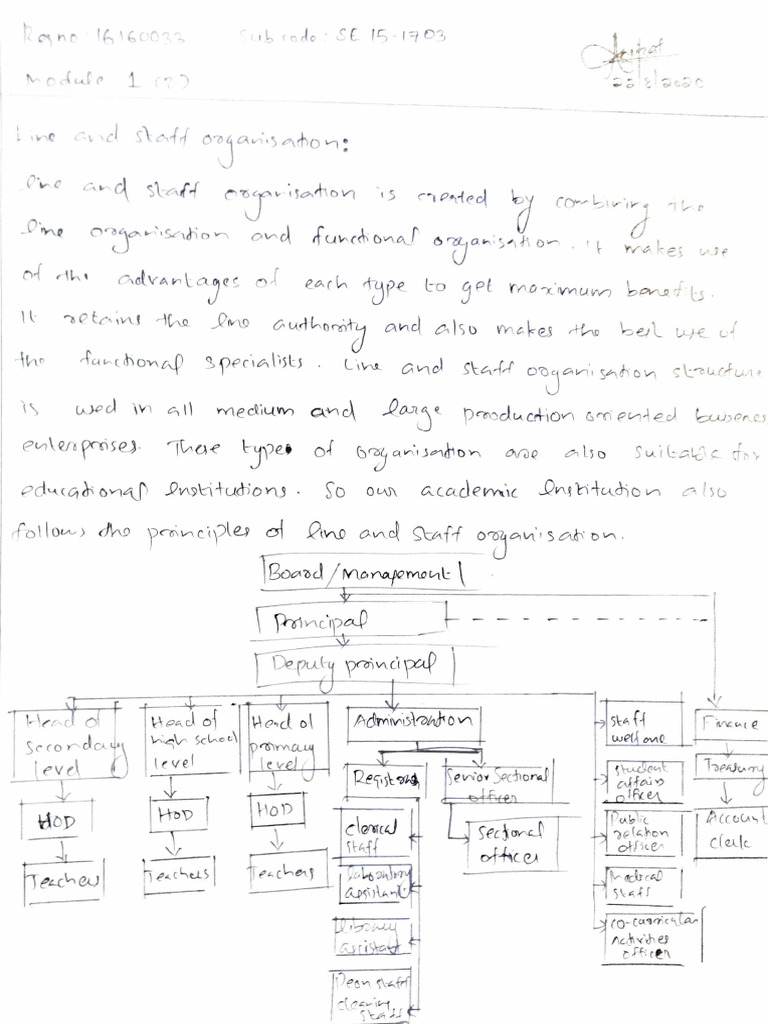 Reg no: 16160033 Sub code: SE 15-1703
Module 1 (2)
22/8/2020
Line and staff organisation:
line and staff organisation is created by combining the
line organisation and functional organisation. It makes use
of the advantages of each type to get maximum benefits.
It retains the line authority and also makes the best use of
the functional specialists. Line and staff organisation structure
is used in all medium and large production oriented
enterprises. These types of organisation are also suitable for
educational Institutions. So our academic Institution also
follows the principles of line and staff organisation.
Board/Management
Principal
Deputy principal
Head of secondary level
Head of high school level
Head of primary level
Administration
staff welfare
Finance
Registrar
Senior Sectional officer
Student affairs officer
Treasury
HOD
HOD
HOD
clerical staff
Sectional officer
Public relation officer
Account clerk
Teachers
Teachers
Teachers
Laboratory assistant
Medical staff
library assistant
co-curricular Activities officer
staff
cleaning staff